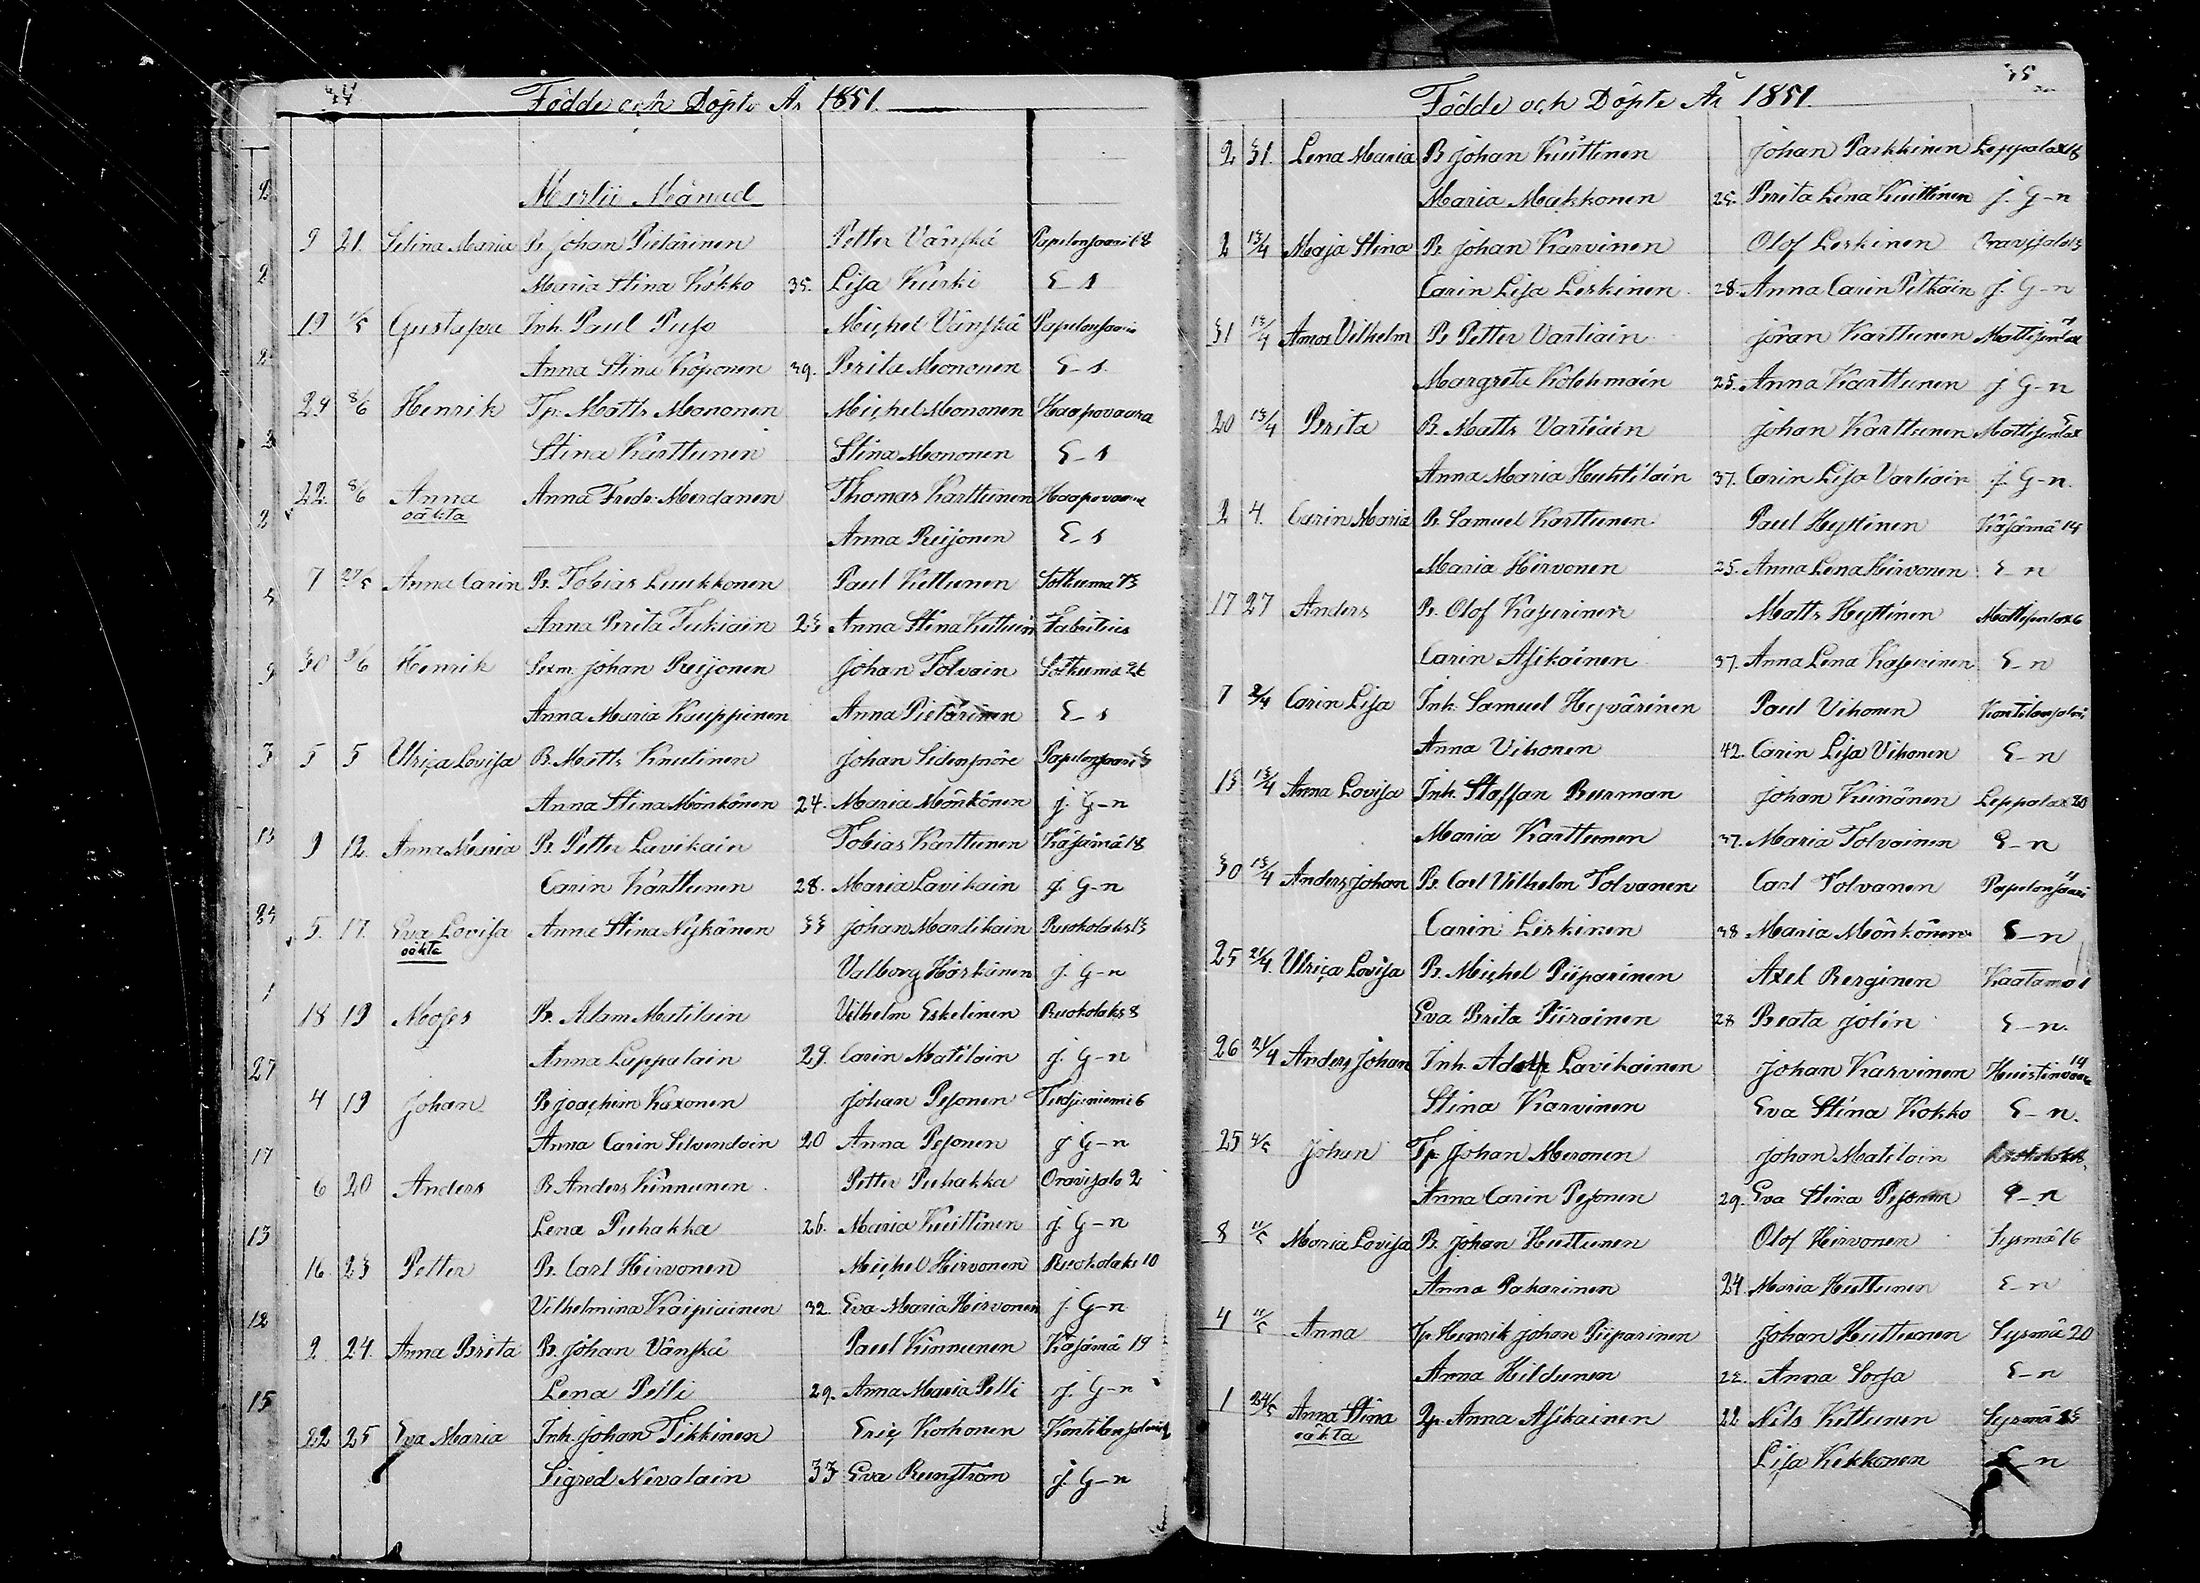 44
Födde och Döpte År 1851.
Martii Månad
9 21. Selina Maria B. Johan Pietarinen Petter Vänskä Papelonsaari 18
Maria Stina Kokko 35. Lisa Kurki E-s
19 1/5 Gustava Inh. Paul Puso Michel Vänskä Papelonsaari
Anna Stina Koponen 39. Brita Mononen E-s
24 8/6 Henrik Tp. Matts Mononen Michel Mononen Haapovaara
Stina Karttunen Stina Mononen E-s
22. 8/6 Anna Anna Fredr. Merdanen Thomas Karttunen Haapovaara
oäkta
Anna Reijonen E-s
7 27/5 Anna Carin B. Tobias Luukkonen Paul Kettunen Sotkuma 73
Anna Brita Tukiain 23 Anna Stina Kettuin Fabritius
30 9/6 Henrik Sexm. Johan Reijonen Johan Tolvain Sotkuma 26
Anna Maria Kauppinen Anna Pietarinen E-s
5 5 Ulrica Lovisa B. Matts Knutinen Johan Sidensnöre Papelonsaari 3
Anna Stina Mönkönen 24. Maria Mönkönen j. G-n
9 12. Anna Maria B. Petter Lavikain Tobias Karttunen Käsämä 18
Carin Karttunen 28. Maria Lavikain j. G-n
5. 17. Eva Lovisa Anna Stina Nykänen 33 Johan Mardikain Ruokolaks 13
oäkta
Valborg Härkönen j. G-n
18 19 Moses B. Adam Matilain Vilhelm Eskelinen Ruokolaks 8
Anna Lappalain 29. Carin Matilain j. G-n
4 19 Johan B Joachim Kaxonen Johan Pesonen Tutjuniemi 6
Anna Carin Silvendoin 20 Anna Pesonen j G-n
6 20 Anders B. Anders Kinnunen Petter Puhakka Oravisalo 2
Lena Puhakka 26. Maria Kuittinen j. G-n
16. 23 Petter B. Carl Hirvonen Michel Hirvonen Ruokolaks 10
Vilhelmina Kaipiainen 32. Eva Maria Hirvonen j. G-n
2 24. Anna Brita B. Johan Vänskä Paul Kinnunen Käsämä 19
Lena Pelli 29. Anna Maria Pelli j. G-n
22 25 Eva Maria Inh. Johan Tikkinen Eric Korhonen Kontilansalmi
Sigred Nevalain 33 Eva Runström j. G-n
35
Födde och Döpte År 1851.
2 31. Lena Maria B Johan Kuittinen Johan Parkkinen Leppalax 18
Maria Makkonen 25. Brita Lena Kuittinen j. G-n
2 13/4 Maja Stina B. Johan Karvinen Olof Leskinen Oravisalo 13
Carin Lisa Leskinen 28. Anna Carin Pitkäin j. G-n
31 13/4 Amos Vilhelm B. Petter Vartiain Jöran Karttunen Mattisenlax
Margreta Kolehmain 25. Anna Karttunen j G-n
20 13/4 Brita B. Matts Vartiain Johan Karttunen Mattisenlax
Anna Maria Huhtilain 37. Carin Lisa Vartiain j. G-n.
2 4. Carin Maria B. Samuel Karttunen Paul Hyttinen Käsämä 14
Maria Hirvonen 25. Anna Lena Hirvonen E-n
17 27 Anders B. Olof Kasurinen Matts Hyttinen Mattisenlax 6
Carin Asikainen 37. Anna Lena Kasurinen E-n
7 2/4 Carin Lisa Inh. Samuel Hyvärinen Paul Vihonen Kontilansalmi
Anna Vihonen 42. Carin Lisa Vihonen E-n
13 13/4 Anna Lovisa Inh. Staffan Burman Johan Kuinänen Leppalax 20
Maria Karttunen 37. Maria Tolvainen E-n
30 13/4 Anders Johan B. Carl Vilhelm Tolvanen Carl Tolvanen Papelonsaari
Carin Leskinen 38 Maria Mönkönen E-n
25 21/4 Ulrica Lovisa B. Michel Piiparinen Axel Berginen Kaatamo 1
Eva Brita Piirainen 28 Beata Jolin E-n.
26 21/4 Anders Johan Inh. Adolf Lavikainen Johan Karvinen Huistinvaara 14
Stina Karvinen Eva Stina Kokko E-n.
25 4/5 Johan Tp. Johan Meronen Johan Matilain
Anna Carin Pesonen 29. Eva Stina Pesonen E-n
8 11/5 Maria Lovisa B. Johan Huttunen Olof Hirvonen Sysmä 16
Anna Pakarinen 24. Maria Huttunen E-n
4 11/5 Anna Tp. Henrik Johan Piiparinen Johan Huttunen Sysmä 20
Anna Hildunen 22. Anna Sorsa E-n
1 24/5 Anna Stina Tp. Anna Asikainen 22 Nils Kettunen Sysmä 25
oäkta
Lisa Kekkonen E-n